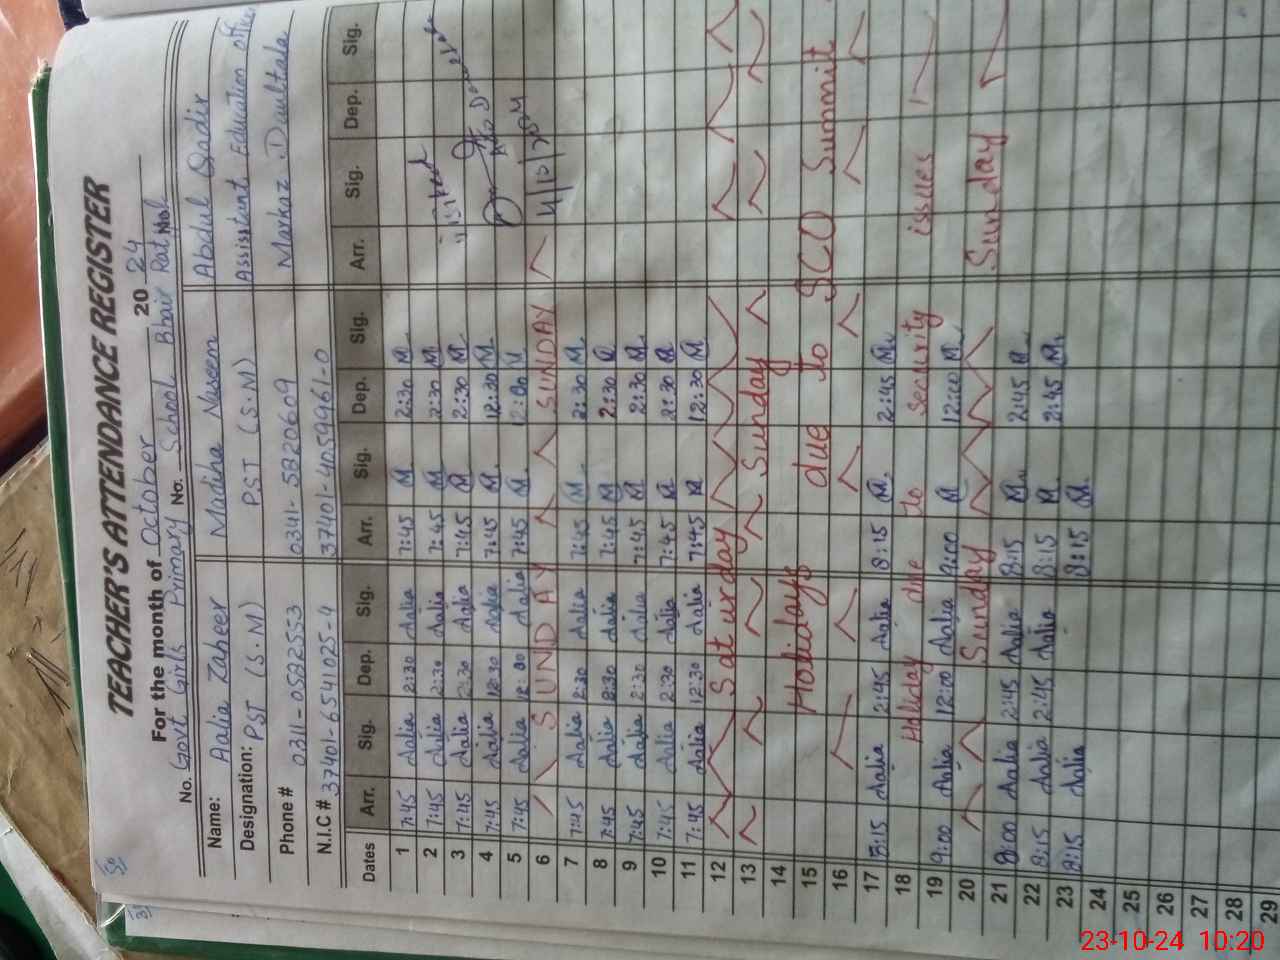 TEACHER'S ATTENDANCE REGISTER
For the month of October 2024
No. Govt Girls Primary No. School Bhair Rat
Name: Aalia Zaheer Madiha Naseem Abdul Qadir
Designation: PST (S.M) PST (S.M) Assistant Education officer
Phone # 0311-0582553 0341-5820609 Markaz Daultala
N.I.C # 37401-6541025-4 37401-4059961-0
Dates Arr. Sig. Dep. Sig. Arr. Sig. Dep. Sig. Arr. Sig. Dep. Sig.
1 7:45 Aalia 2:30 Aalia 7:45 M. 2:30 M.
2 7:45 Aalia 2:30 Aalia 7:45 M. 2:30 M. visited
3 7:45 Aalia 2:30 Aalia 7:45 M. 2:30 M.
4 7:45 Aalia 12:30 Aalia 7:45 M. 12:30 M. AEO
5 7:45 Aalia 12:00 Aalia 7:45 M. 12:00 M. 4/10/2024
6 SUNDAY SUNDAY
7 7:45 Aalia 2:30 Aalia 7:45 M. 2:30 M.
8 7:45 Aalia 2:30 Aalia 7:45 M. 2:30 M.
9 7:45 Aalia 2:30 Aalia 7:45 M. 2:30 M.
10 7:45 Aalia 2:30 Aalia 7:45 M. 2:30 M.
11 7:45 Aalia 12:30 Aalia 7:45 M. 12:30 M.
12 Saturday
13 Sunday
14
15 Holidays due to SCO Summit
16
17 8:15 Aalia 2:45 Aalia 8:15 M. 2:45 M.
18 Holiday due to security issues
19 9:00 Aalia 12:00 Aalia 9:00 M. 12:00 M.
20 Sunday Sunday
21 8:00 Aalia 2:45 Aalia 8:15 M. 2:45 M.
22 8:15 Aalia 2:45 Aalia 8:15 M. 2:45 M.
23 8:15 Aalia 8:15 M.
24
25
26
27
28
29
23-10-24 10:20